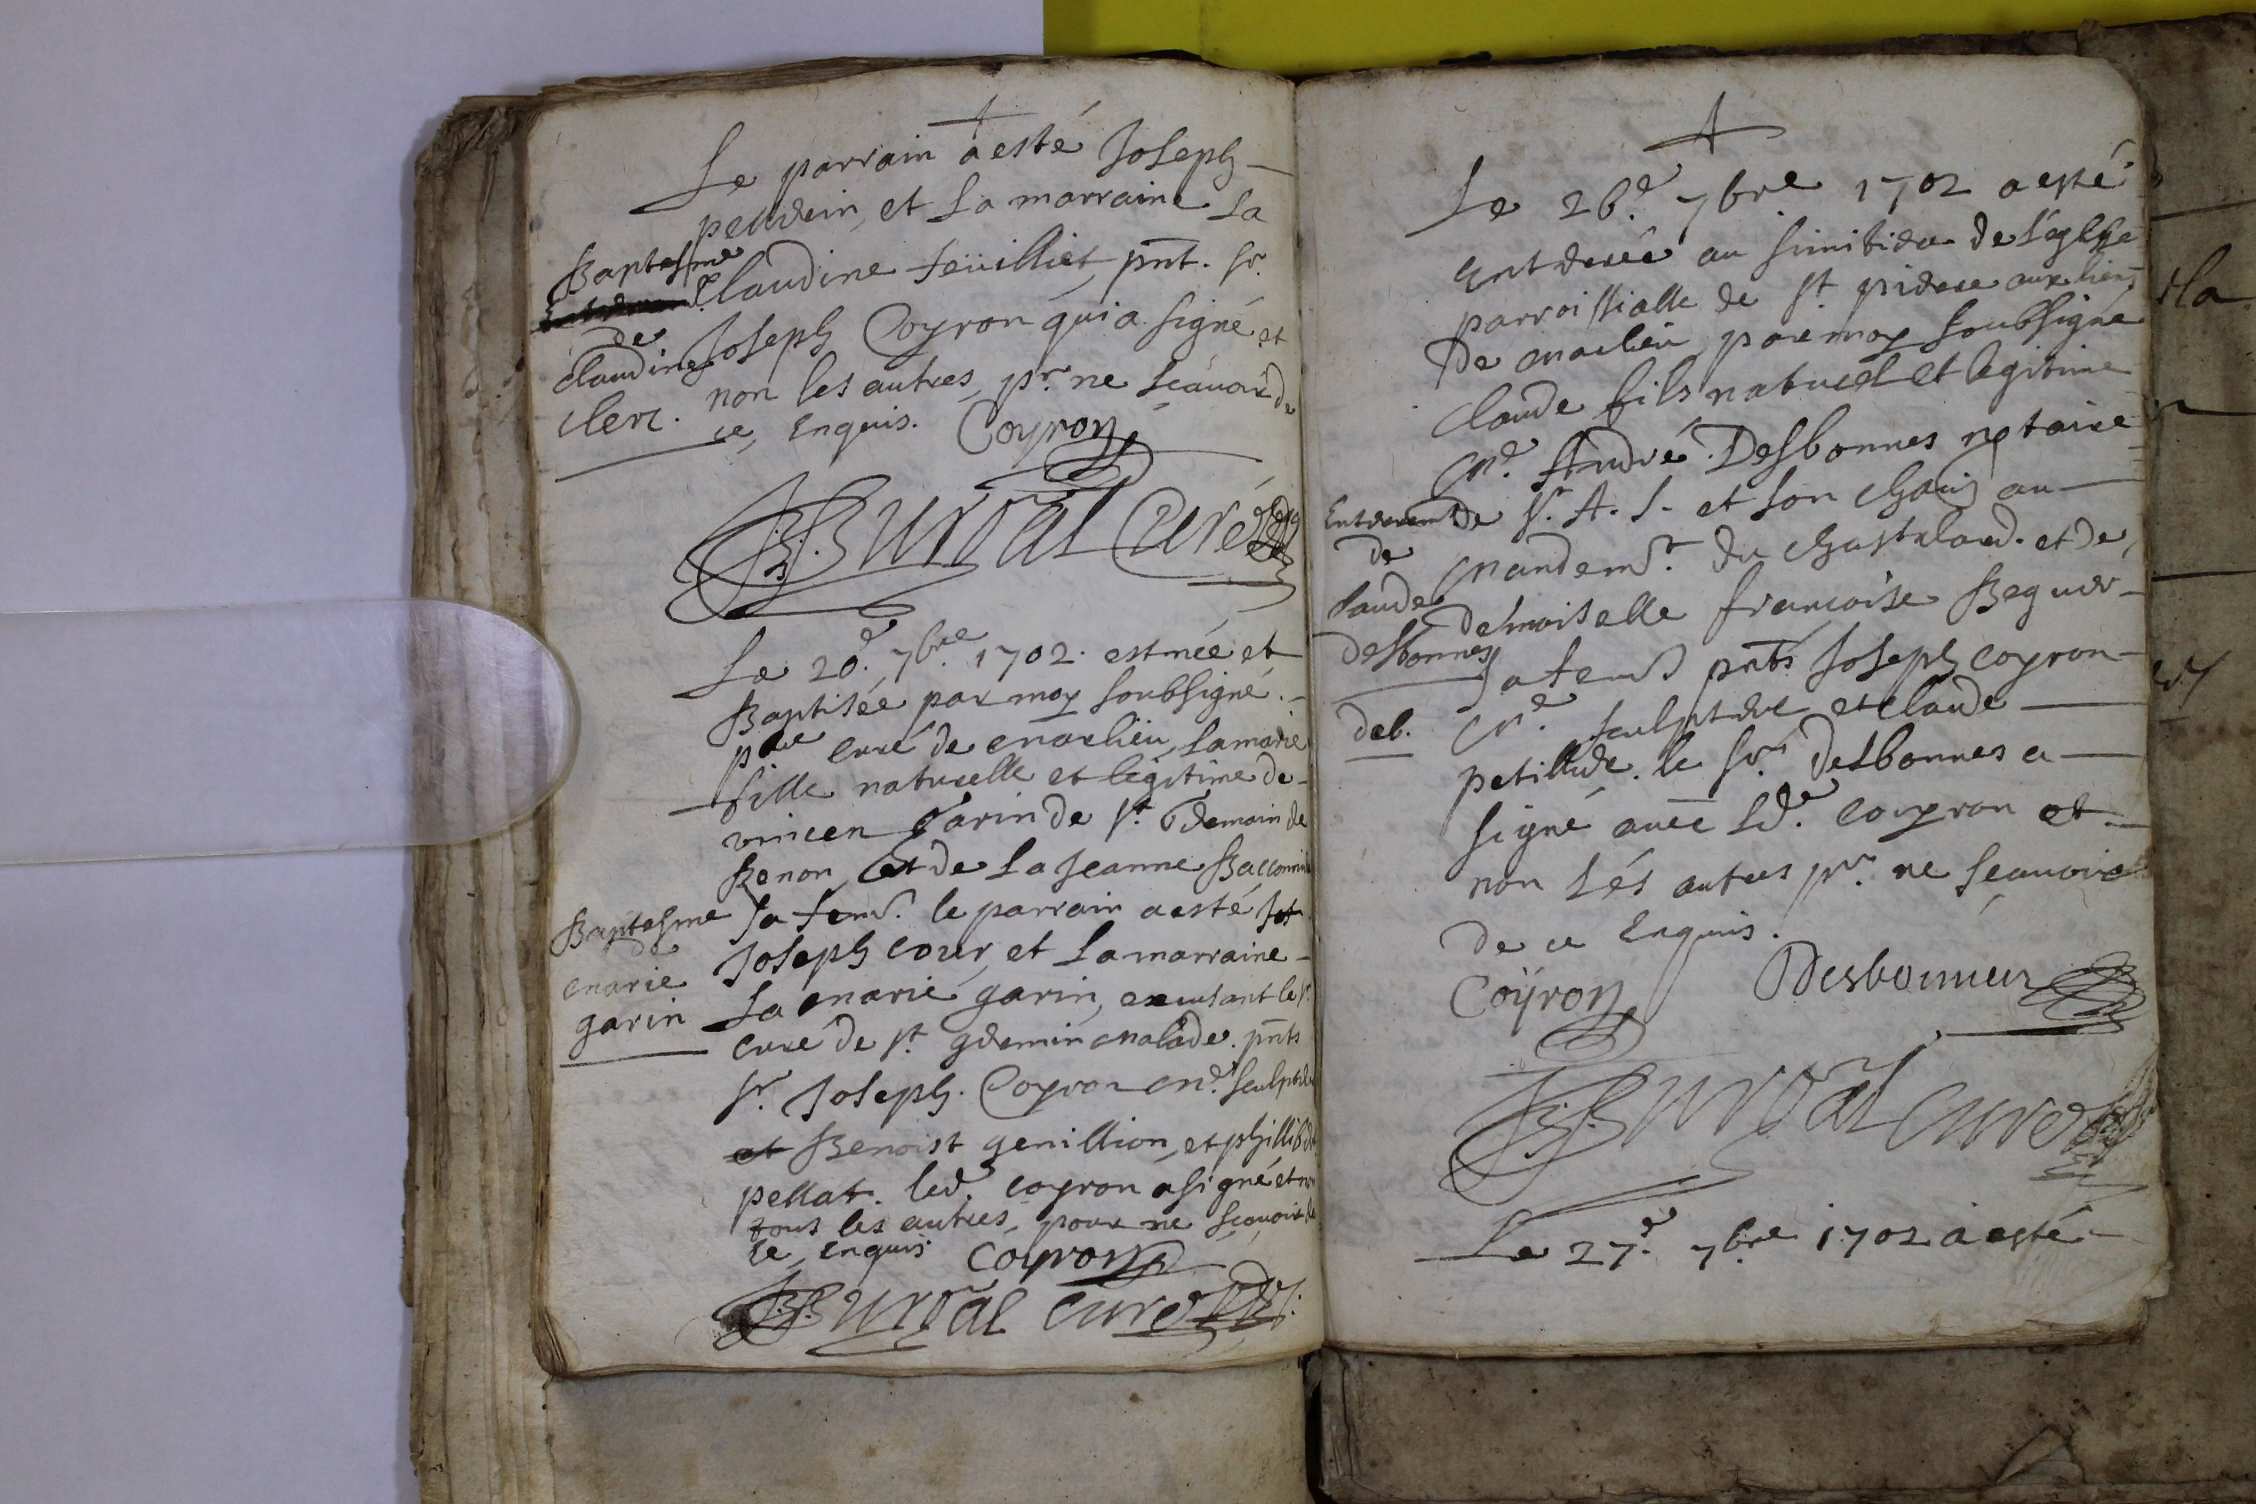 Le parrain a esté Joseph
pelldrin, et La marraine La
Baptesme
Claudine feüilliet, pnt. sr.
de
Claudine
Clerc.
Joseph Coyron qui a signé et
non les autres, pr. ne sçauoir de
ce, Enquis. Coyron
BB Burdal Curé
Le 20e. 7bre. 1702. est née et
Baptisée par moy soubsigné
pbre curé de marlieu, La marie
fille naturelle et legitime de
vincen garin de st. Germain de
Renon, et de La Jeanne
Baptesme
de
marie
garin
sa feme. le parrain a esté
Joseph cour, et La marraine
La marie garin, le sr.
curé de st. germin malade. pnts
sr. Joseph. Coyron me. sculpteur
et Benoist genillion, et phillibert
pellat. led. coyron a signé et non
tous les autres, pour ne sçauoir de
ce, Enquis. Coyron
BB Burdal Curé
Le 26e. 7bre 1702 a esté
Enterré au simitiere de L'eglise
parroissialle de st. pierre aux liens
De marlieu, par moy soubsigné
Claude fils naturel et legitime
me. André Desbonnes notaire
Enterremt
de
Claude
desbonnes
deb.
de sr. A. S. et son chatn au
mandemt. du chastelard. et de
demoiselle francoise Beguer
sa feme pnts Joseph coyron
me. sculpteur et claude
petillide. le sr. desbonnes a
signé avec Ld. coyron et
non Lés autres pr. ne sçauoir
de ce Enquis.
Coÿron Desbonnes
BB Burdal curé
Le 27e. 7bre 1702 a esté